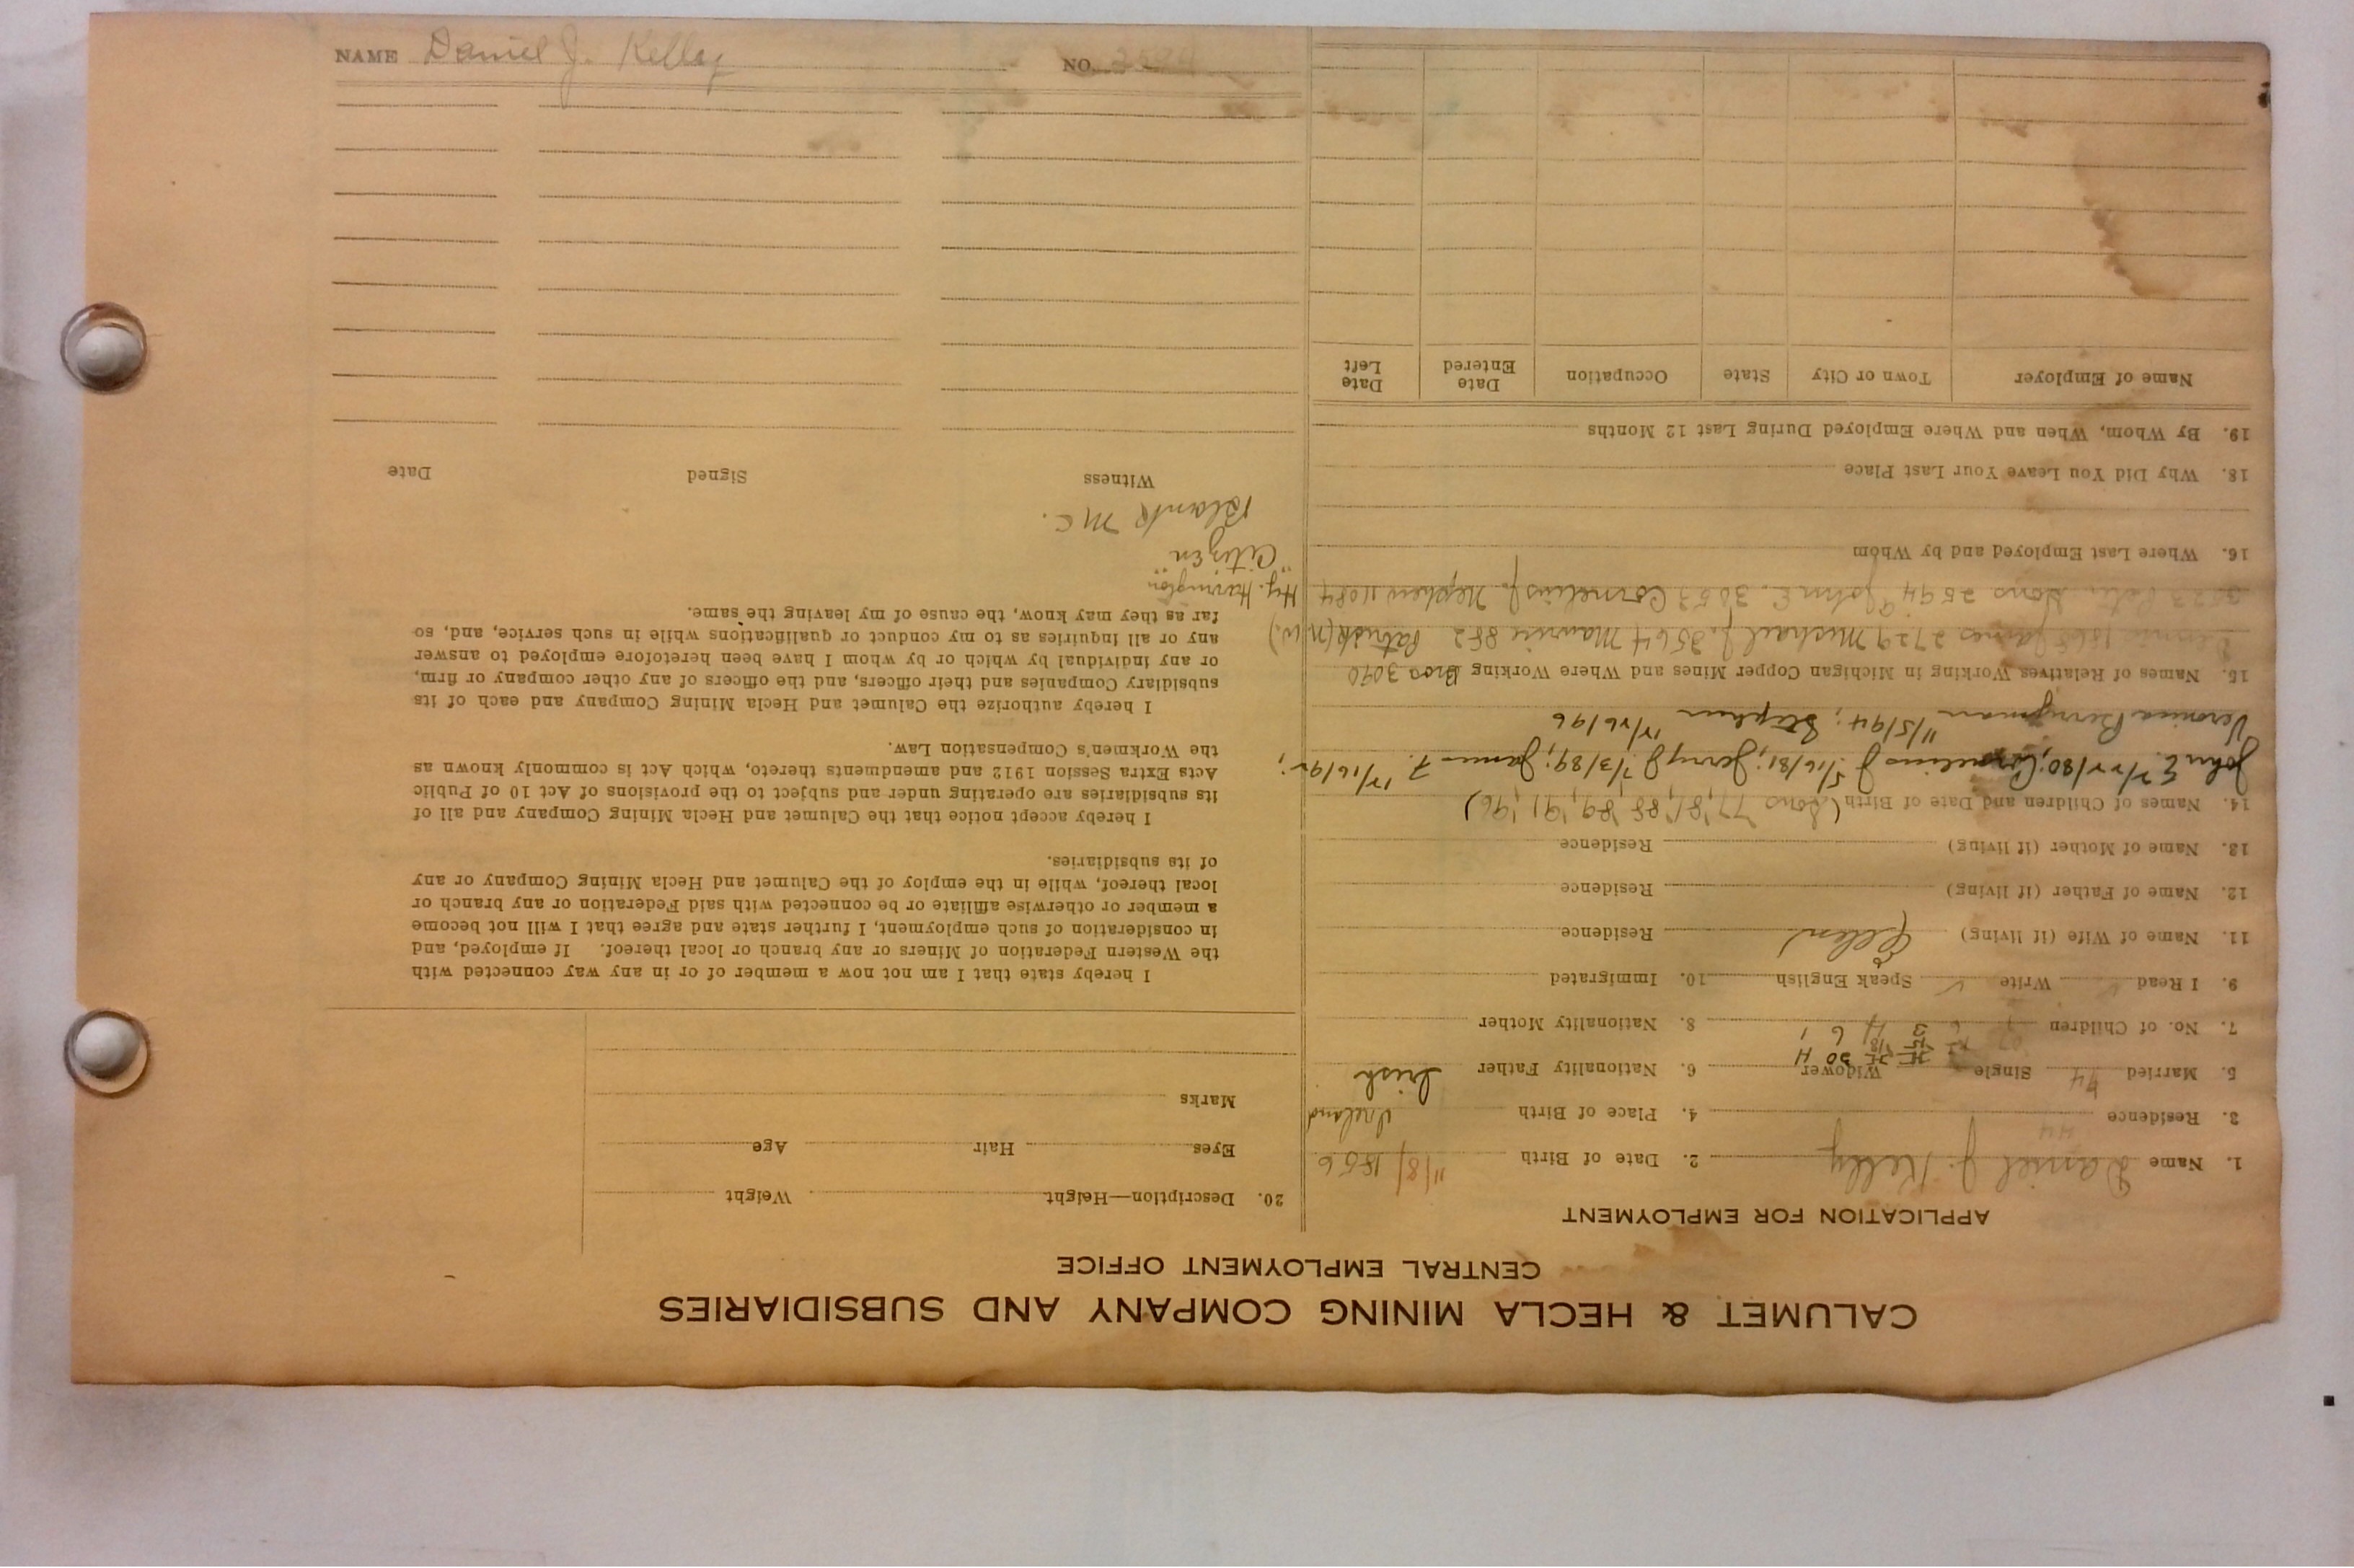 CALUMET & HECLA MINING COMPANY AND SUBSIDIARIES
CENTRAL EMPLOYMENT OFFICE
APPLICATION FOR EMPLOYMENT
1. Name Daniel J. Kelly 2. Date of Birth 11/8/1856
44
3. Residence 4. Place of Birth Ireland
5. Married 74 Single Widower 6. Nationality Father Irish
7. No. of Children 8. Nationality Mother
9. I Read ✓ Write ✓ Speak English 10. Immigrated
11. Name of Wife (if living) Ellen Residence
12. Name of Father (if living) Residence
13. Name of Mother (if living) Residence
14. Names of Children and Date of Birth (Sons 77, 81, 88, 89, 91, 96)
John E. 80; Cornelius J. 5/16/81; Jerry J. 7/3/89; James F. 12/16/91;
Veronica Berryman 11/5/94; Stephen 12/26/96
15. Names of Relatives Working in Michigan Copper Mines and Where Working Bros 3070
1868 James 2729 Michael J. 3564 Maurice 852 Patrick (N.W.)
Sons 2594 John E. 3053 Cornelius J. Nephew 11084 Hy. Harrington
16. Where Last Employed and by Whom
18. Why Did You Leave Your Last Place
19. By Whom, When and Where Employed During Last 12 Months
Name of Employer Town or City State Occupation Date Entered Date Left
20. Description—Height Weight
Eyes Hair Age
Marks
I hereby state that I am not now a member of or in any way connected with
the Western Federation of Miners or any branch or local thereof. If employed, and
in consideration of such employment, I further state and agree that I will not become
a member or otherwise affiliate or be connected with said Federation or any branch or
local thereof, while in the employ of the Calumet and Hecla Mining Company or any
of its subsidiaries.
I hereby accept notice that the Calumet and Hecla Mining Company and all of
its subsidiaries are operating under and subject to the provisions of Act 10 of Public
Acts Extra Session 1912 and amendments thereto, which Act is commonly known as
the Workmen's Compensation Law.
I hereby authorize the Calumet and Hecla Mining Company and each of its
subsidiary Companies and their officers, and the officers of any other company or firm,
or any individual by which or by whom I have been heretofore employed to answer
any or all inquiries as to my conduct or qualifications while in such service, and, so
far as they may know, the cause of my leaving the same.
"Citizen"
Blank Mc.
Witness Signed Date
NAME Daniel J. Kelley NO.